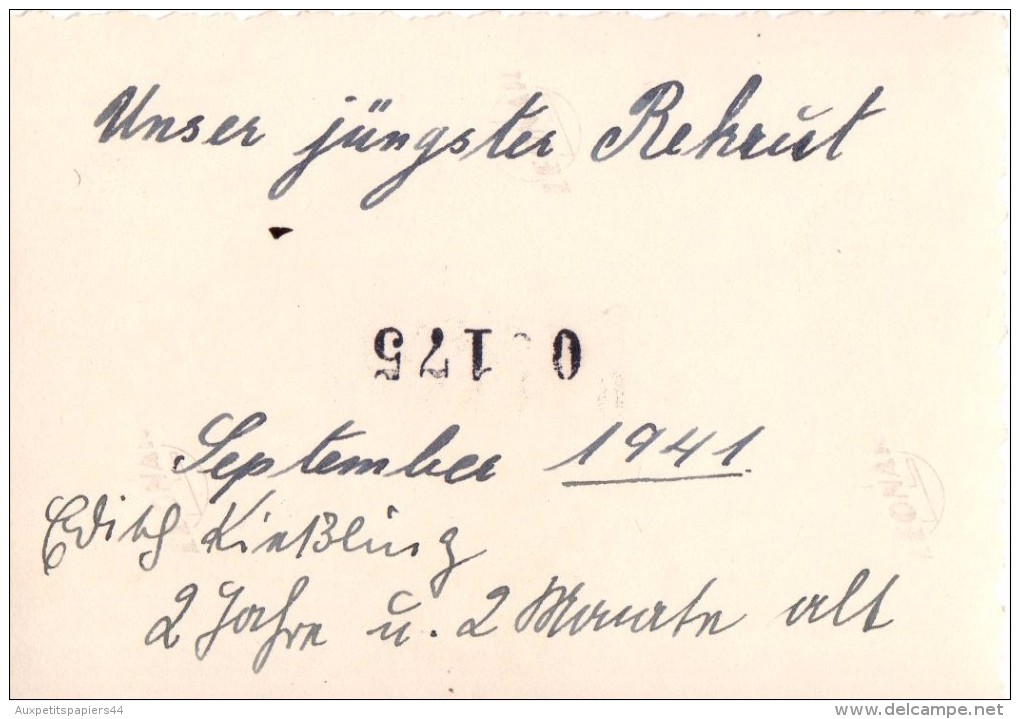 Unser jüngster Rekrut
0 175
September 1941
Edith Kießling
2 Jahre u. 2 Monate alt
Auxpetitspapiers44
delcampe.net